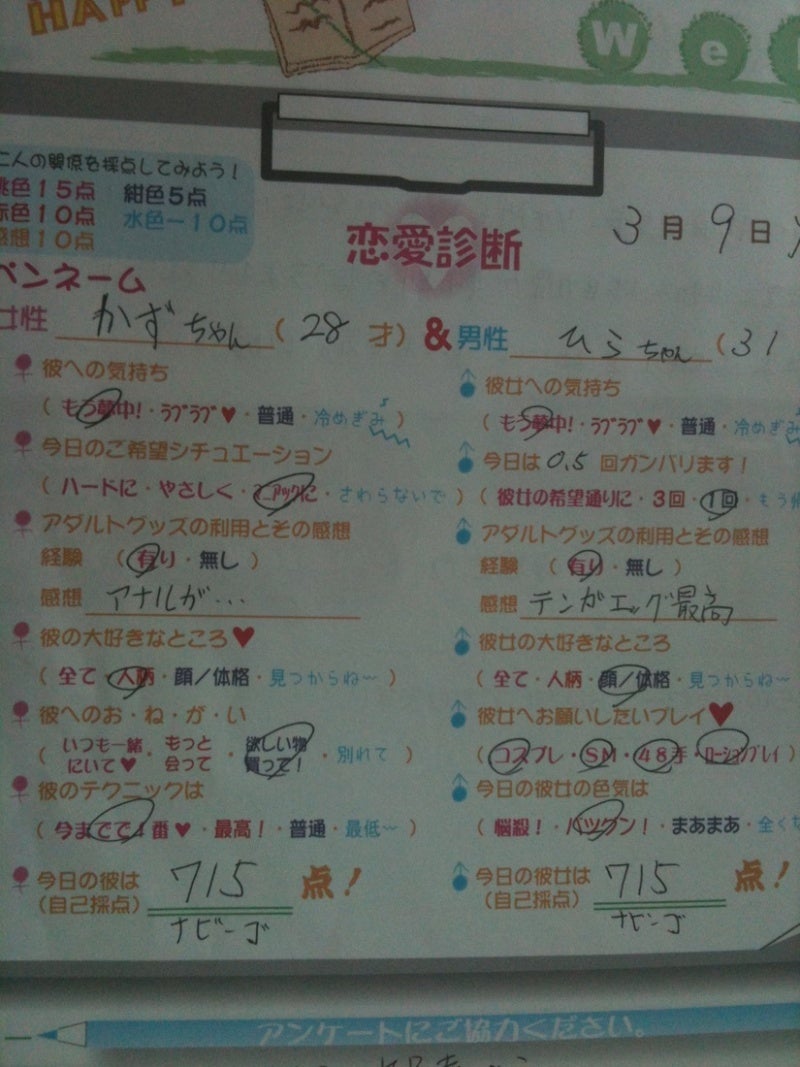 HAPP
We
二人の関係を採点してみよう!
桃色15点 紺色5点
赤色10点 水色-10点
感想10点
恋愛診断
3月9日
ペンネーム
女性 かずちゃん(28才)&男性 ひらちゃん(31
彼への気持ち
(もう夢中!・ラブラブ♥・普通・冷めぎみ)
今日のご希望シチュエーション
(ハードに・やさしく・に・さわらないで)
アダルトグッズの利用とその感想
経験 (有り・無し)
感想 アナルが…
彼の大好きなところ♥
(全て・人柄・顔/体格・見つからね~)
彼へのお・ね・が・い
(いつも一緒にいて♥・もっと会って・欲しい物買って!・別れて)
彼のテクニックは
(今までで1番♥・最高!・普通・最低~)
今日の彼は 715 点!
(自己採点)
ナビーゴ
彼女への気持ち
(もう夢中!・ラブラブ♥・普通・冷めぎみ
今日は0.5回ガンバリます!
(彼女の希望通りに・3回・1回・もう
アダルトグッズの利用とその感想
経験 (有り・無し)
感想 テンガエッグ最高
彼女の大好きなところ
(全て・人柄・顔/体格・見つからね~
彼女へお願いしたいプレイ♥
(コスプレ・SM・48手・ローションプレイ)
今日の彼女の色気は
(悩殺!・バツグン!・まあまあ・全く
今日の彼女は 715 点!
(自己採点)
ナビーゴ
アンケートにご協力ください。